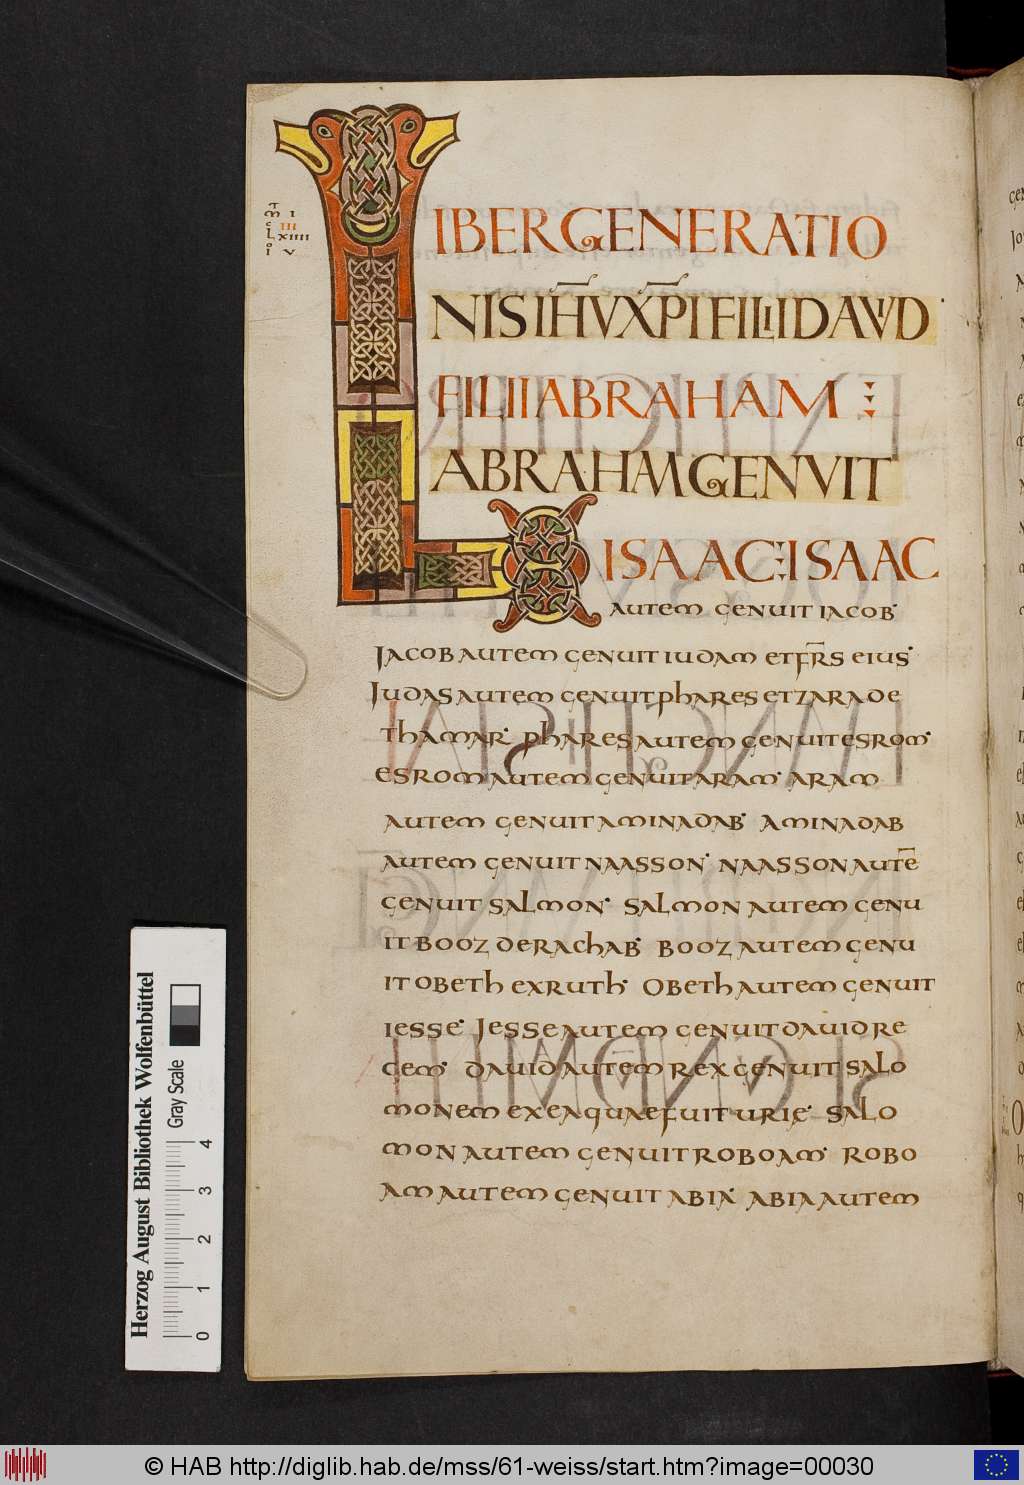 LIBER GENERATIO
NIS IHU XPI FILII DAVID
FILII ABRAHAM
ABRAHAM GENVIT
ISAAC: ISAAC
autem genuit iacob·
Jacob autem genuit iudam et frs eius·
Judas autem genuit phares et zara de
thamar· phares autem genuit esrom·
esrom autem genuit aram· aram
autem genuit aminadab· aminadab
autem genuit naasson· naasson autē
genuit salmon· salmon autem genu
it booz de rachab· booz autem genu
it obeth ex ruth· Obeth autem genuit
iesse· Jesse autem genuit dauid re
gem· dauid autem rex genuit salo
monem ex ea quae fuit urię· salo
mon autem genuit roboam· robo
am autem genuit abia· abia autem
I
III
XIIII
V
Herzog August Bibliothek Wolfenbüttel
Gray Scale
0 1 2 3 4
© HAB http://diglib.hab.de/mss/61-weiss/start.htm?image=00030